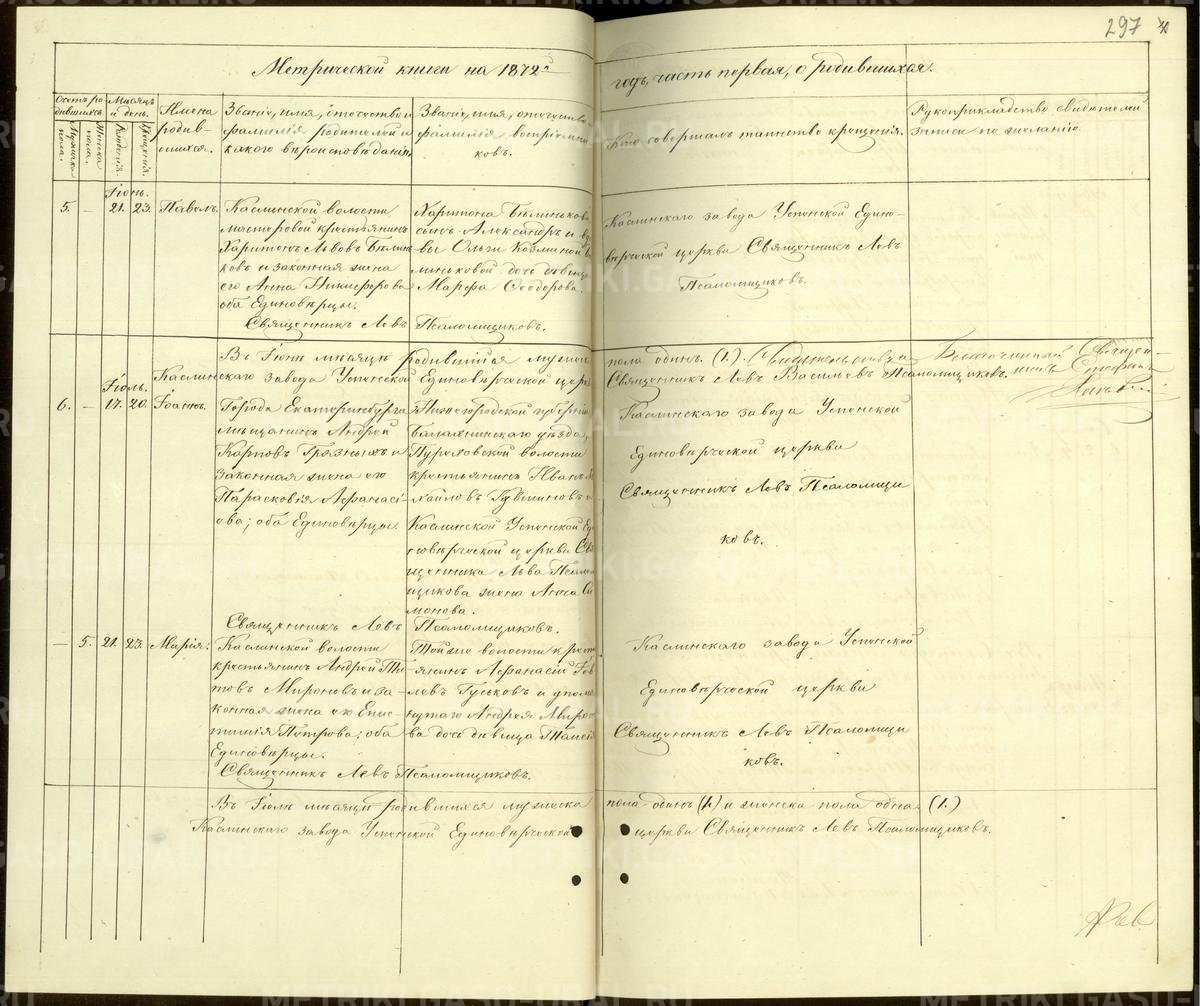 297
Метрической книги на 1872й годъ, часть первая, о родившихся.
Счетъ родившихся.
Мужска пола.
Женска пола.
Мѣсяцъ и день.
Рожденія.
Крещенія.
Имена родившихся.
Званіе, имя, отчество и
фамилія родителей и
какого вѣроисповѣданія.
Званіе, имя, отчество
фамилія воспріемниковъ.
Кто совершалъ таинство крещенія.
Рукоприкладство свидѣтелей
записи по желанію.
Іюнь.
5. – 21. 23. Павелъ.
Каслинской волости
мастеровой крестьянинъ
Харитонъ Львовъ Бѣлин-
ковъ и законная жена
его Анна Никифорова
оба Единовѣрцы.
Харитона Бѣлинькова
сынъ Александръ и вдо
вы Ольги Козминой Бѣ
линьковой дочь дѣвица
Марѳа Ѳеодорова.
Каслинскаго завода Успенской Едино-
вѣрческой церкви Священникъ Левъ
Псаломщиковъ.
Священникъ Левъ Псаломщиковъ.
Въ Іюнѣ мѣсяцѣ родившійся мужска пола одинъ. (1.)
Каслинскаго завода Успенской Единовѣрческой церкви Священникъ Левъ Васильевъ Псаломщиковъ.
Благочинный Священ-
никъ Стефанъ
Іюль.
6. – 17. 20. Іоаннъ.
Города Екатеринбурга
мѣщанинъ Андрей
Карповъ Грязныхъ и
Законная жена его
Парасковія Аѳанасі-
ева; оба Единовѣрцы.
Нижегородской губерніи
Балахнинскаго уѣзда,
Пуреховской волости
крестьянинъ Иванъ Ми
хайловъ
Каслинской Успенской Еди
новѣрческой церкви Свя
щенника Льва Псалом
щикова жена Анна Си
монова.
Каслинскаго завода Успенской
Единовѣрческой церкви
Священникъ Левъ Псаломщи
ковъ.
Священникъ Левъ Псаломщиковъ.
– 5. 21. 23. Марія.
Каслинской волости
крестьянинъ Андрей Ти-
товъ Мироновъ и за-
конная жена его Епис-
тимія Петрова; оба
Единовѣрцы.
Тойже волости крест
янинъ Аѳанасій Гов
левъ Гуськовъ и упомя
нутаго Андрея Миро
ва дочь дѣвица Таисія
Каслинскаго завода Успенской
Единовѣрческой церкви
Священникъ Левъ Псаломщи
ковъ.
Священникъ Левъ Псаломщиковъ.
Въ Іюлѣ мѣсяцѣ родившихся мужска пола одинъ (1.) и женска пола одна (1.)
Каслинскаго завода Успенской Единовѣрческой церкви Священникъ Левъ Псаломщиковъ.
METRIKI.GASO-URAL.RU